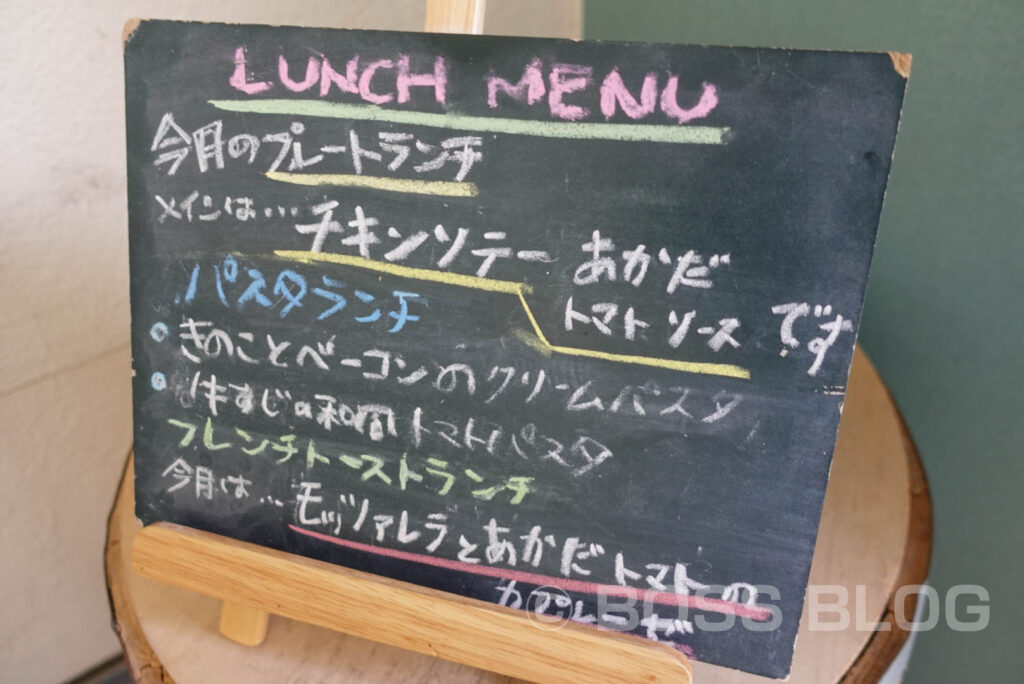 LUNCH MENU
今月のプレートランチ
メインは… チキンソテー あかだ
トマトソース です
パスタランチ
きのことベーコンのクリームパスタ
牛すじの和風トマトパスタ
フレンチトーストランチ
今月は… モッツァレラとあかだトマトの
カプレーゼ
© BOSS BLOG